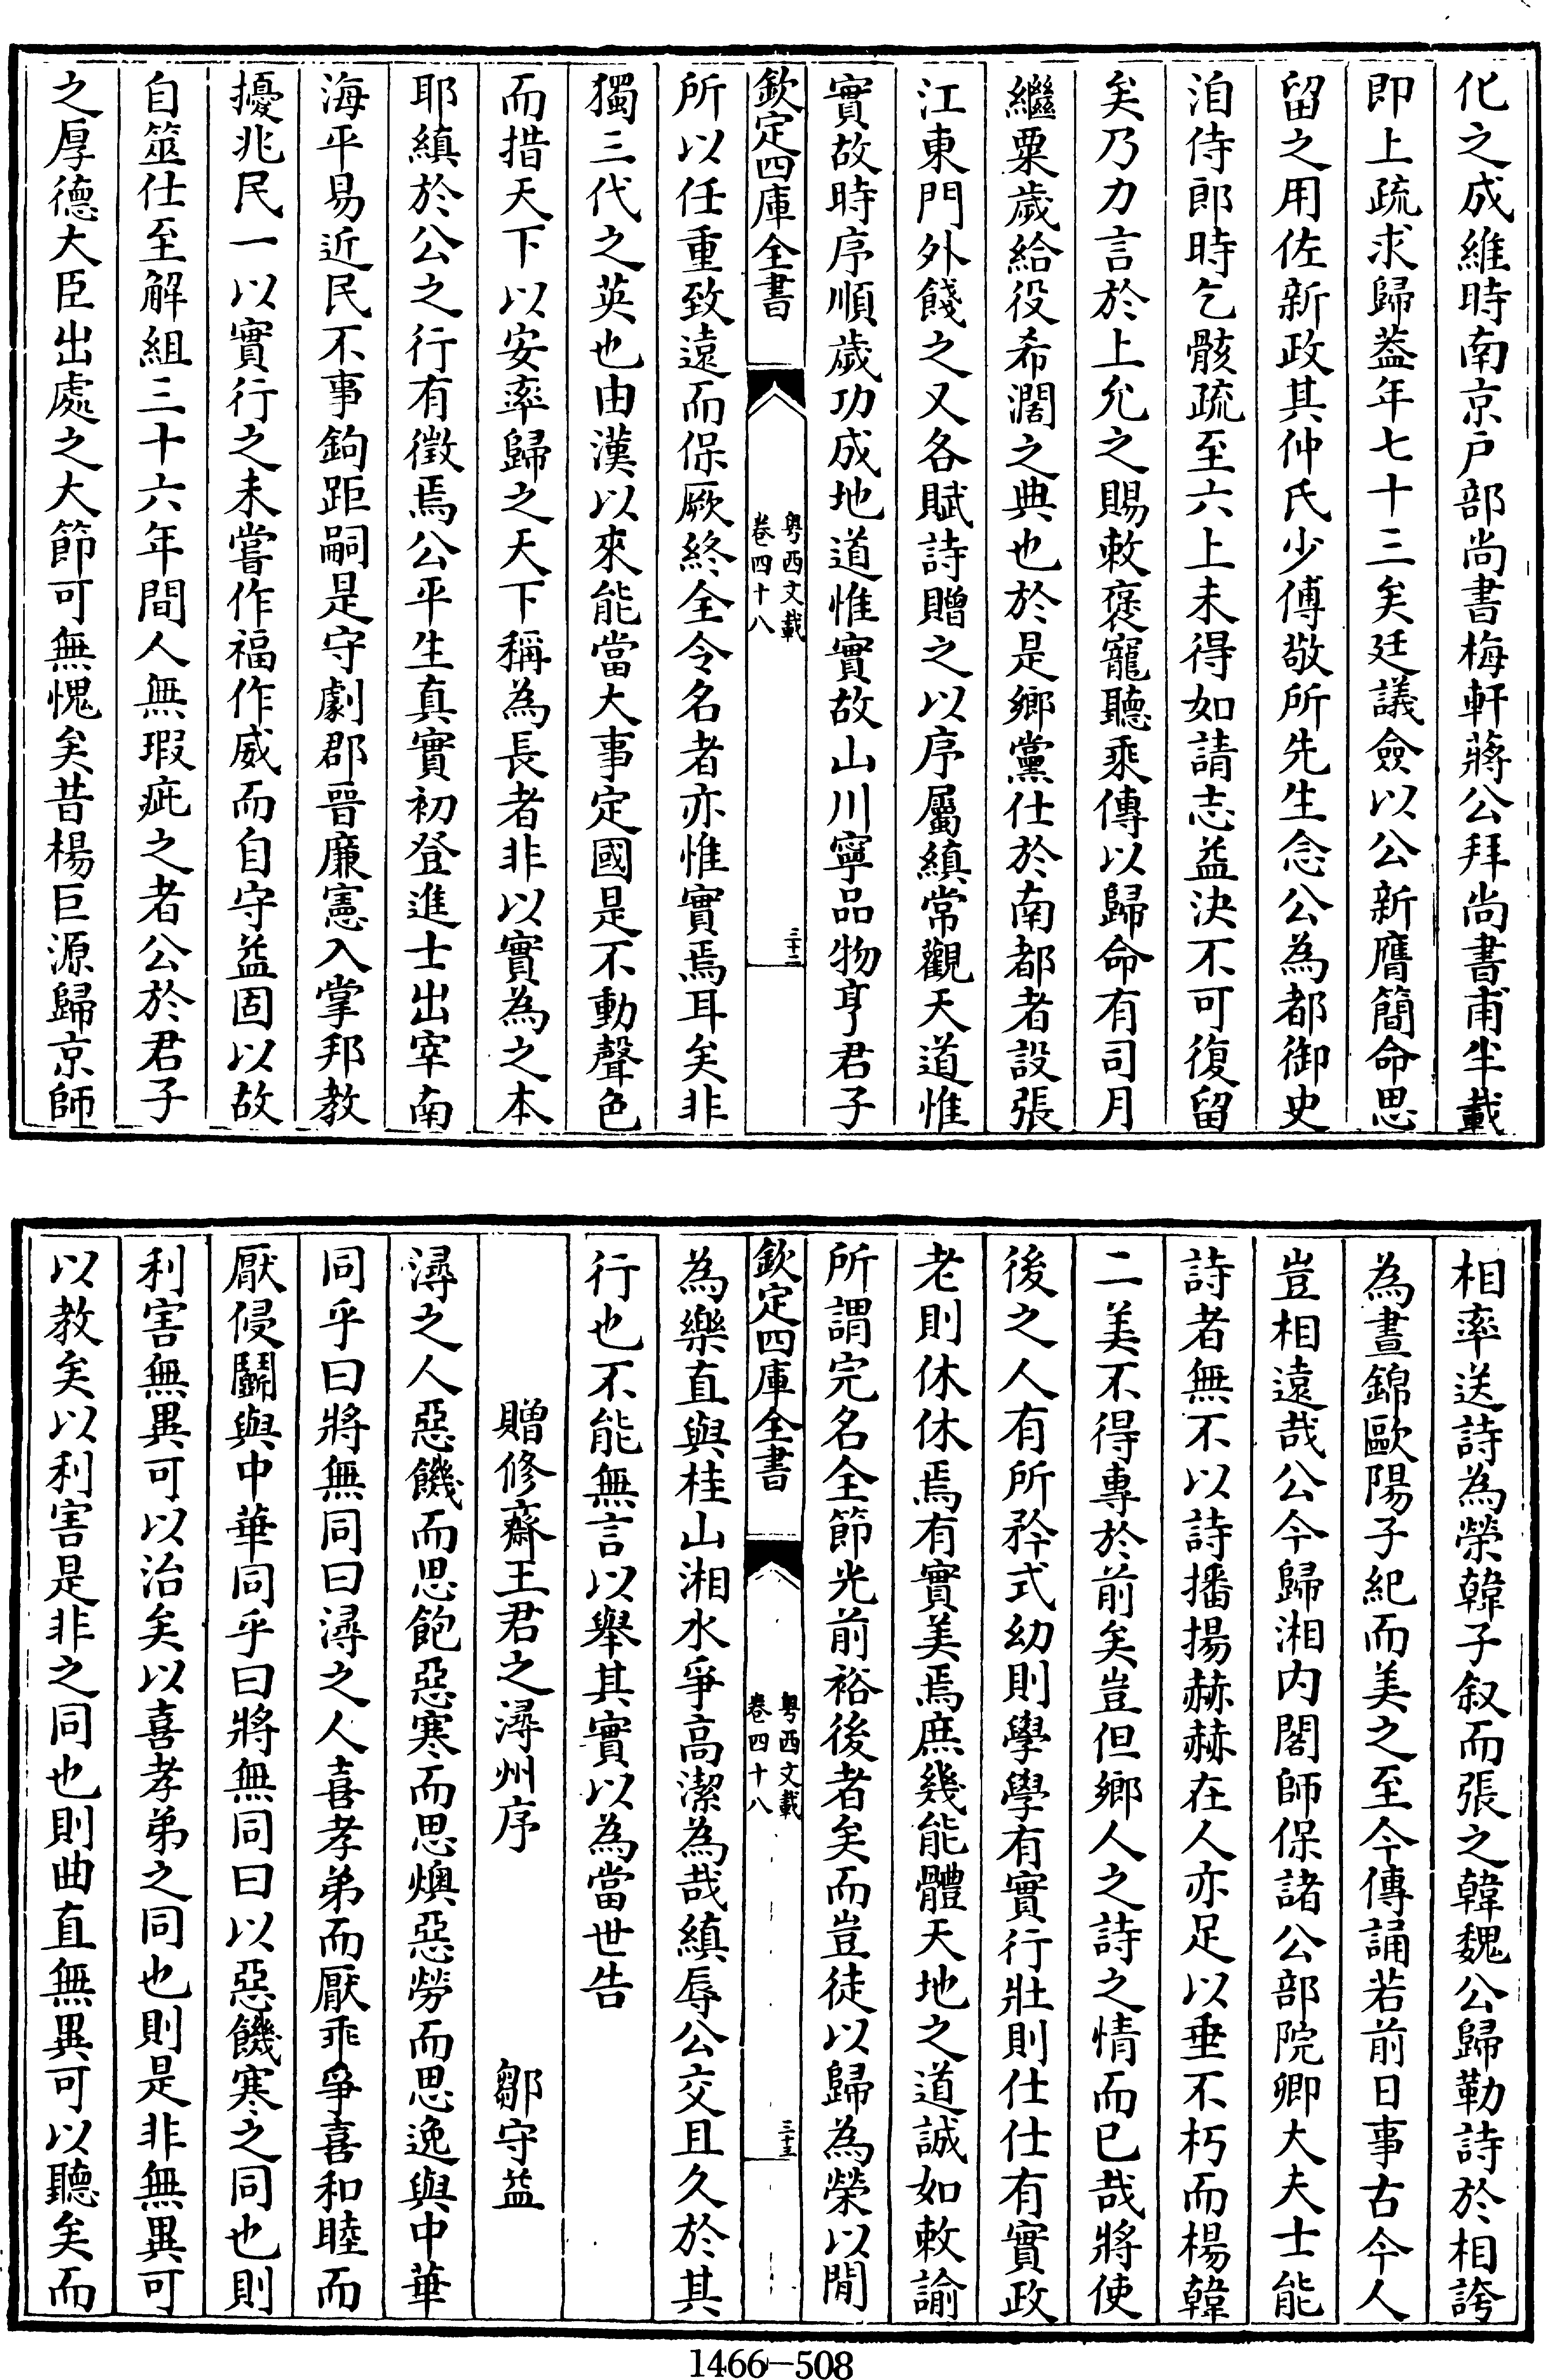 化之成維時南京戶部尚書梅軒蔣公拜尚書甫半載
即上疏求歸葢年七十三矣廷議僉以公新膺簡命思
留之用佐新政其仲氏少傅敬所先生念公為都御史
洎侍郎時乞骸疏至六上未得如請志益決不可復留
矣乃力言於上允之賜敕褒寵聽乘傳以歸命有司月
繼粟歲給役希濶之典也於是鄉黨仕於南都者設張
江東門外餞之又各賦詩贈之以序屬縝常觀天道惟
實故時序順歲功成地道惟實故山川寧品物亨君子
欽定四庫全書
粵西文載
卷四十八
三十二
所以任重致遠而保厥終全令名者亦惟實焉耳矣非
獨三代之英也由漢以來能當大事定國是不動聲色
而措天下以安率歸之天下稱為長者非以實為之本
耶縝於公之行有徵焉公平生真實初登進士出宰南
海平易近民不事鉤距嗣是守劇郡晉廉憲入掌邦教
擾兆民一以實行之未嘗作福作威而自守益固以故
自筮仕至解組三十六年間人無瑕疵之者公於君子
之厚德大臣出處之大節可無愧矣昔楊巨源歸京師
相率送詩為榮韓子叙而張之韓魏公歸勒詩於相誇
為晝錦歐陽子紀而美之至今傳誦若前日事古今人
豈相遠哉公今歸湘内閣師保諸公部院卿大夫士能
詩者無不以詩播揚赫赫在人亦足以垂不朽而楊韓
二美不得專於前矣豈但鄉人之詩之情而已哉將使
後之人有所矜式幼則學學有實行壯則仕仕有實政
老則休休焉有實美焉庶幾能體天地之道誠如敕諭
所謂完名全節光前裕後者矣而豈徒以歸為榮以閒
欽定四庫全書
粵西文載
卷四十八
三十三
為樂直與桂山湘水爭高潔為哉縝辱公交且久於其
行也不能無言以舉其實以為當世告
贈修齋王君之潯州序 鄒守益
潯之人惡饑而思飽惡寒而思燠惡勞而思逸與中華
同乎曰將無同曰潯之人喜孝弟而厭乖爭喜和睦而
厭侵鬭與中華同乎曰將無同曰以惡饑寒之同也則
利害無異可以治矣以喜孝弟之同也則是非無異可
以教矣以利害是非之同也則曲直無異可以聽矣而
1466—508